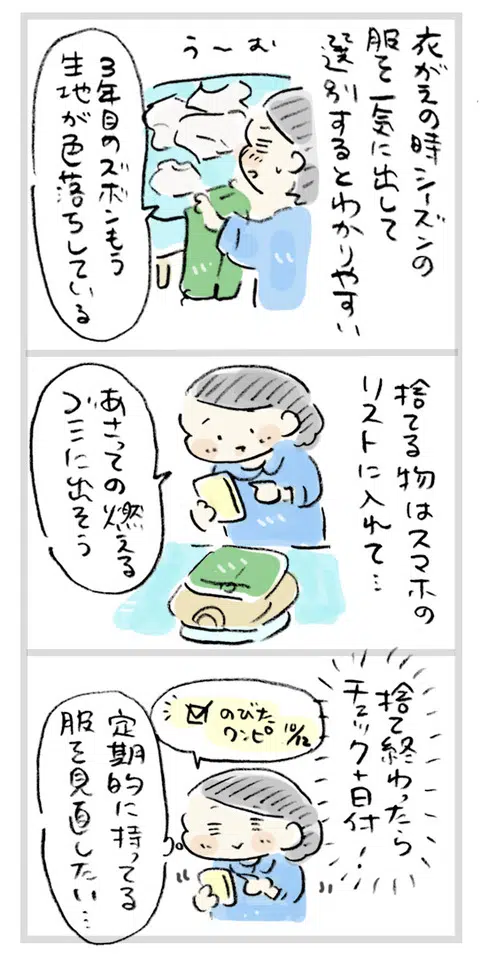 衣がえの時シーズンの
服を一気に出して
選別するとわかりやすい
う〜む
3年目のズボンもう
生地が色落ちしている
捨てる物はスマホの
リストに入れて…
あさっての燃える
ゴミに出そう
捨て終わったら
チェック+日付!
のびた
ワンピ 10/12
定期的に持ってる
服を見直したい…